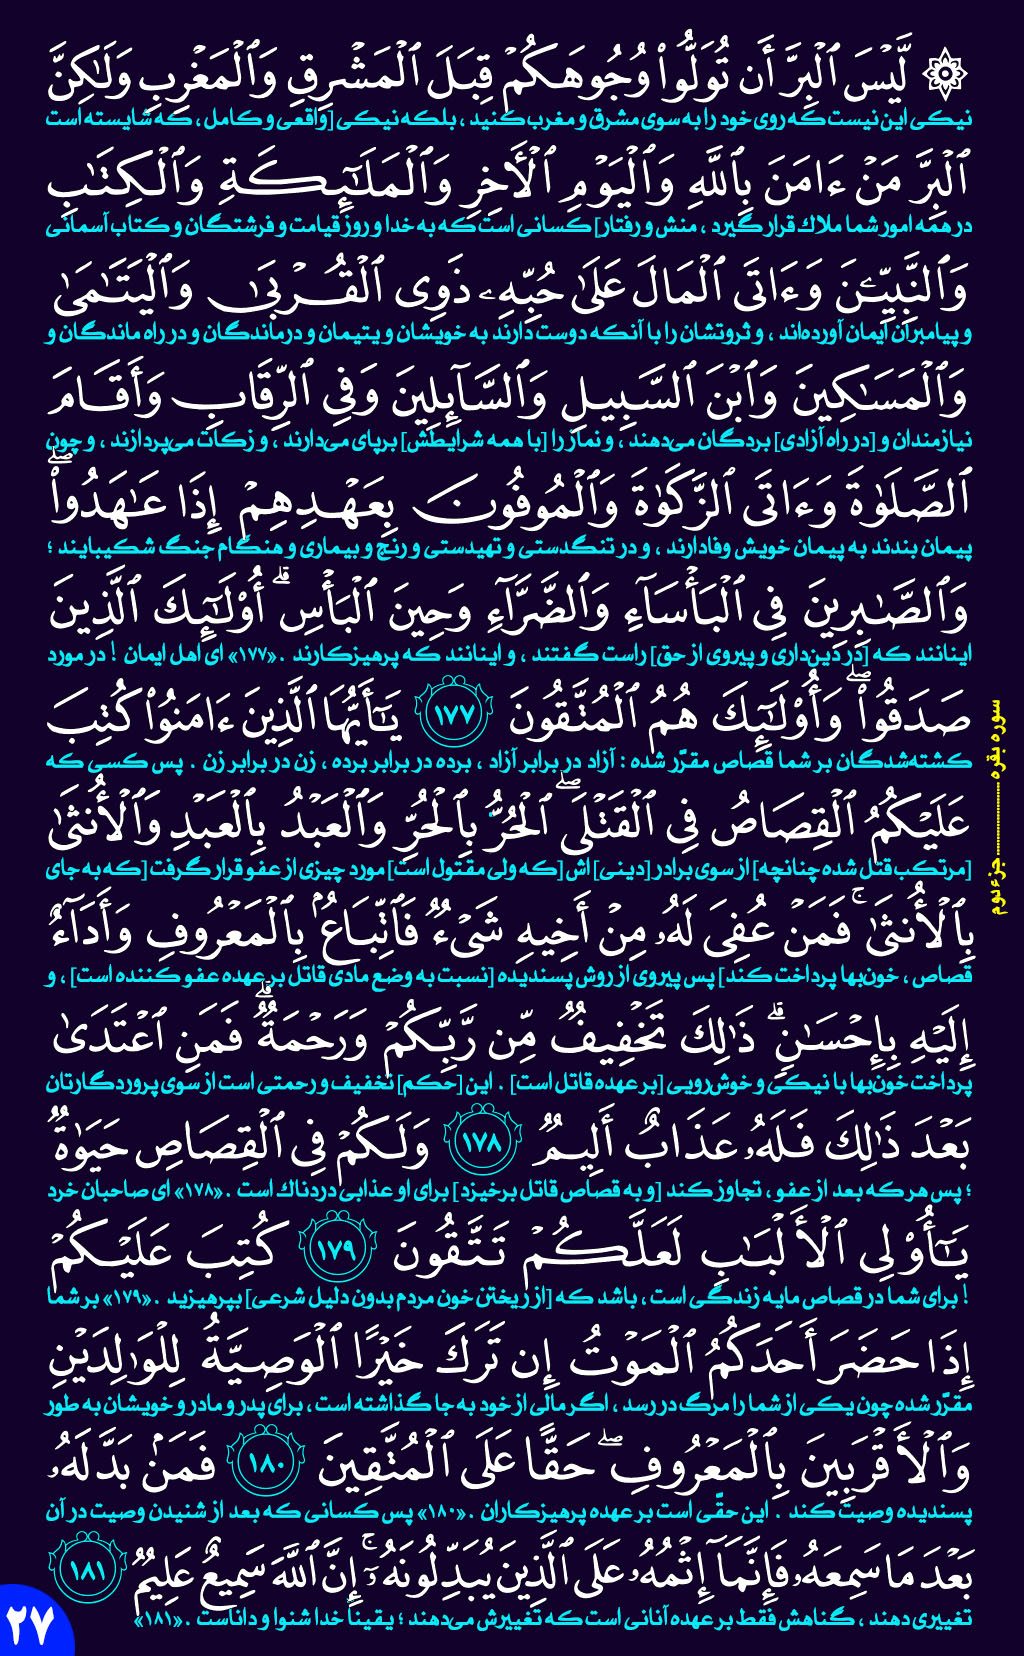 ۞ لَّيْسَ ٱلْبِرَّ أَن تُوَلُّوا۟ وُجُوهَكُمْ قِبَلَ ٱلْمَشْرِقِ وَٱلْمَغْرِبِ وَلَـٰكِنَّ
نیکی این نیست که روی خود را به سوی مشرق و مغرب کنید ، بلکه نیکی [واقعی و کامل ، که شایسته است
ٱلْبِرَّ مَنْ ءَامَنَ بِٱللَّهِ وَٱلْيَوْمِ ٱلْـَٔاخِرِ وَٱلْمَلَـٰٓئِكَةِ وَٱلْكِتَـٰبِ
در همه امور شما ملاك قرار گیرد ، منش و رفتار] کسانی است که به خدا و روز قیامت و فرشتگان و کتاب آسمانی
وَٱلنَّبِيِّـۧنَ وَءَاتَى ٱلْمَالَ عَلَىٰ حُبِّهِۦ ذَوِى ٱلْقُرْبَىٰ وَٱلْيَتَـٰمَىٰ
و پیامبران ایمان آورده‌اند ، و ثروتشان را با آنکه دوست دارند به خویشان و یتیمان و درماندگان و در راه ماندگان و
وَٱلْمَسَـٰكِينَ وَٱبْنَ ٱلسَّبِيلِ وَٱلسَّآئِلِينَ وَفِى ٱلرِّقَابِ وَأَقَامَ
نیازمندان و [در راه آزادی] بردگان می‌دهند ، و نماز را [با همه شرایطش] برپای می‌دارند ، و زکات می‌پردازند ، و چون
ٱلصَّلَوٰةَ وَءَاتَى ٱلزَّكَوٰةَ وَٱلْمُوفُونَ بِعَهْدِهِمْ إِذَا عَـٰهَدُوا۟ ۖ
پیمان بندند به پیمان خویش وفادارند ، و در تنگدستی و تهیدستی و رنج و بیماری و هنگام جنگ شکیبایند ؛
وَٱلصَّـٰبِرِينَ فِى ٱلْبَأْسَآءِ وَٱلضَّرَّآءِ وَحِينَ ٱلْبَأْسِ ۗ أُو۟لَـٰٓئِكَ ٱلَّذِينَ
اینانند که [در دین‌داری و پیروی از حق] راست گفتند ، و اینانند که پرهیزکارند .«۱۷۷» ای اهل ایمان ! در مورد
صَدَقُوا۟ ۖ وَأُو۟لَـٰٓئِكَ هُمُ ٱلْمُتَّقُونَ ۱۷۷ يَـٰٓأَيُّهَا ٱلَّذِينَ ءَامَنُوا۟ كُتِبَ
کشته‌شدگان بر شما قصاص مقرّر شده : آزاد در برابر آزاد ، برده در برابر برده ، زن در برابر زن . پس کسی که
عَلَيْكُمُ ٱلْقِصَاصُ فِى ٱلْقَتْلَى ۖ ٱلْحُرُّ بِٱلْحُرِّ وَٱلْعَبْدُ بِٱلْعَبْدِ وَٱلْأُنثَىٰ
[مرتکب قتل شده چنانچه] از سوی برادر [دینی] اش [که ولی مقتول است] مورد چیزی از عفو قرار گرفت [که به جای
بِٱلْأُنثَىٰ ۚ فَمَنْ عُفِىَ لَهُۥ مِنْ أَخِيهِ شَىْءٌ فَٱتِّبَاعٌۢ بِٱلْمَعْرُوفِ وَأَدَآءٌ
قصاص ، خون‌بها پرداخت کند] پس پیروی از روش پسندیده [نسبت به وضع مادی قاتل بر عهده عفو کننده است] ، و
إِلَيْهِ بِإِحْسَـٰنٍ ۗ ذَٰلِكَ تَخْفِيفٌ مِّن رَّبِّكُمْ وَرَحْمَةٌ ۗ فَمَنِ ٱعْتَدَىٰ
پرداخت خون‌بها با نیکی و خوش‌رویی [بر عهده قاتل است] . این [حکم] تخفیف و رحمتی است از سوی پروردگارتان
بَعْدَ ذَٰلِكَ فَلَهُۥ عَذَابٌ أَلِيمٌ ۱۷۸ وَلَكُمْ فِى ٱلْقِصَاصِ حَيَوٰةٌ
؛ پس هر که بعد از عفو ، تجاوز کند [و به قصاص قاتل برخیزد] برای او عذابی دردناك است .«۱۷۸» ای صاحبان خرد
يَـٰٓأُو۟لِى ٱلْأَلْبَـٰبِ لَعَلَّكُمْ تَتَّقُونَ ۱۷۹ كُتِبَ عَلَيْكُمْ
! برای شما در قصاص مایه زندگی است ، باشد که [از ریختن خون مردم بدون دلیل شرعی] بپرهیزید .«۱۷۹» بر شما
إِذَا حَضَرَ أَحَدَكُمُ ٱلْمَوْتُ إِن تَرَكَ خَيْرًا ٱلْوَصِيَّةُ لِلْوَٰلِدَيْنِ
مقرّر شده چون یکی از شما را مرگ در رسد ، اگر مالی از خود به جا گذاشته است ، برای پدر و مادر و خویشان به طور
وَٱلْأَقْرَبِينَ بِٱلْمَعْرُوفِ ۖ حَقًّا عَلَى ٱلْمُتَّقِينَ ۱۸۰ فَمَنۢ بَدَّلَهُۥ
پسندیده وصیت کند . این حقّی است بر عهده پرهیزکاران .«۱۸۰» پس کسانی که بعد از شنیدن وصیت در آن
بَعْدَ مَا سَمِعَهُۥ فَإِنَّمَآ إِثْمُهُۥ عَلَى ٱلَّذِينَ يُبَدِّلُونَهُۥٓ ۚ إِنَّ ٱللَّهَ سَمِيعٌ عَلِيمٌ ۱۸۱
تغییری دهند ، گناهش فقط بر عهده آنانی است که تغییرش می‌دهند ؛ یقیناً خدا شنوا و داناست .«۱۸۱»
سوره بقره .................... جزء دوم
۲۷